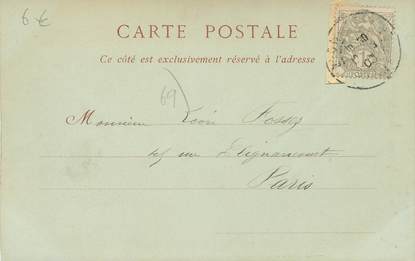 6 €
CARTE POSTALE
Ce côté est exclusivement réservé à l'adresse
69
Monsieur Léon
rue Clignancourt
Paris